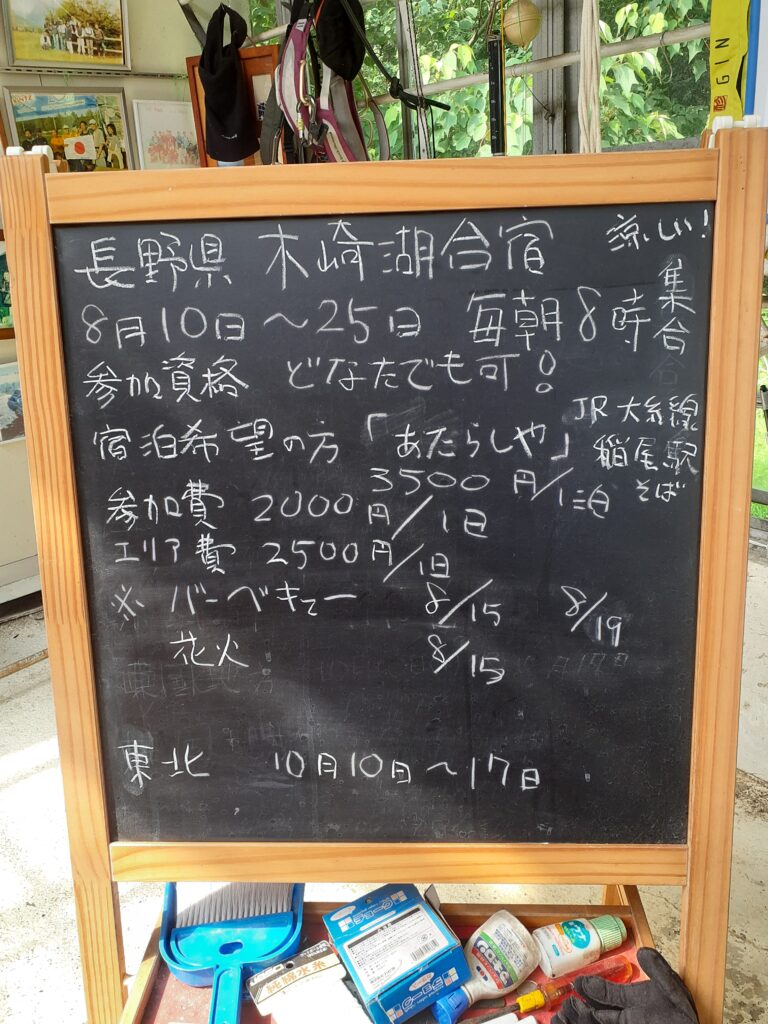 長野県 木崎湖合宿 涼しい!
8月10日~25日 毎朝8時集合
参加資格 どなたでも可!
宿泊希望の方「あたらしや」
JR大糸線
稲尾駅
そば
3500円/1泊
参加費 2000円/1日
エリア費 2500円/1日
※ バーベキュー 8/15 8/19
花火 8/15
東北 10月10日~17日
GIN
純綿水糸